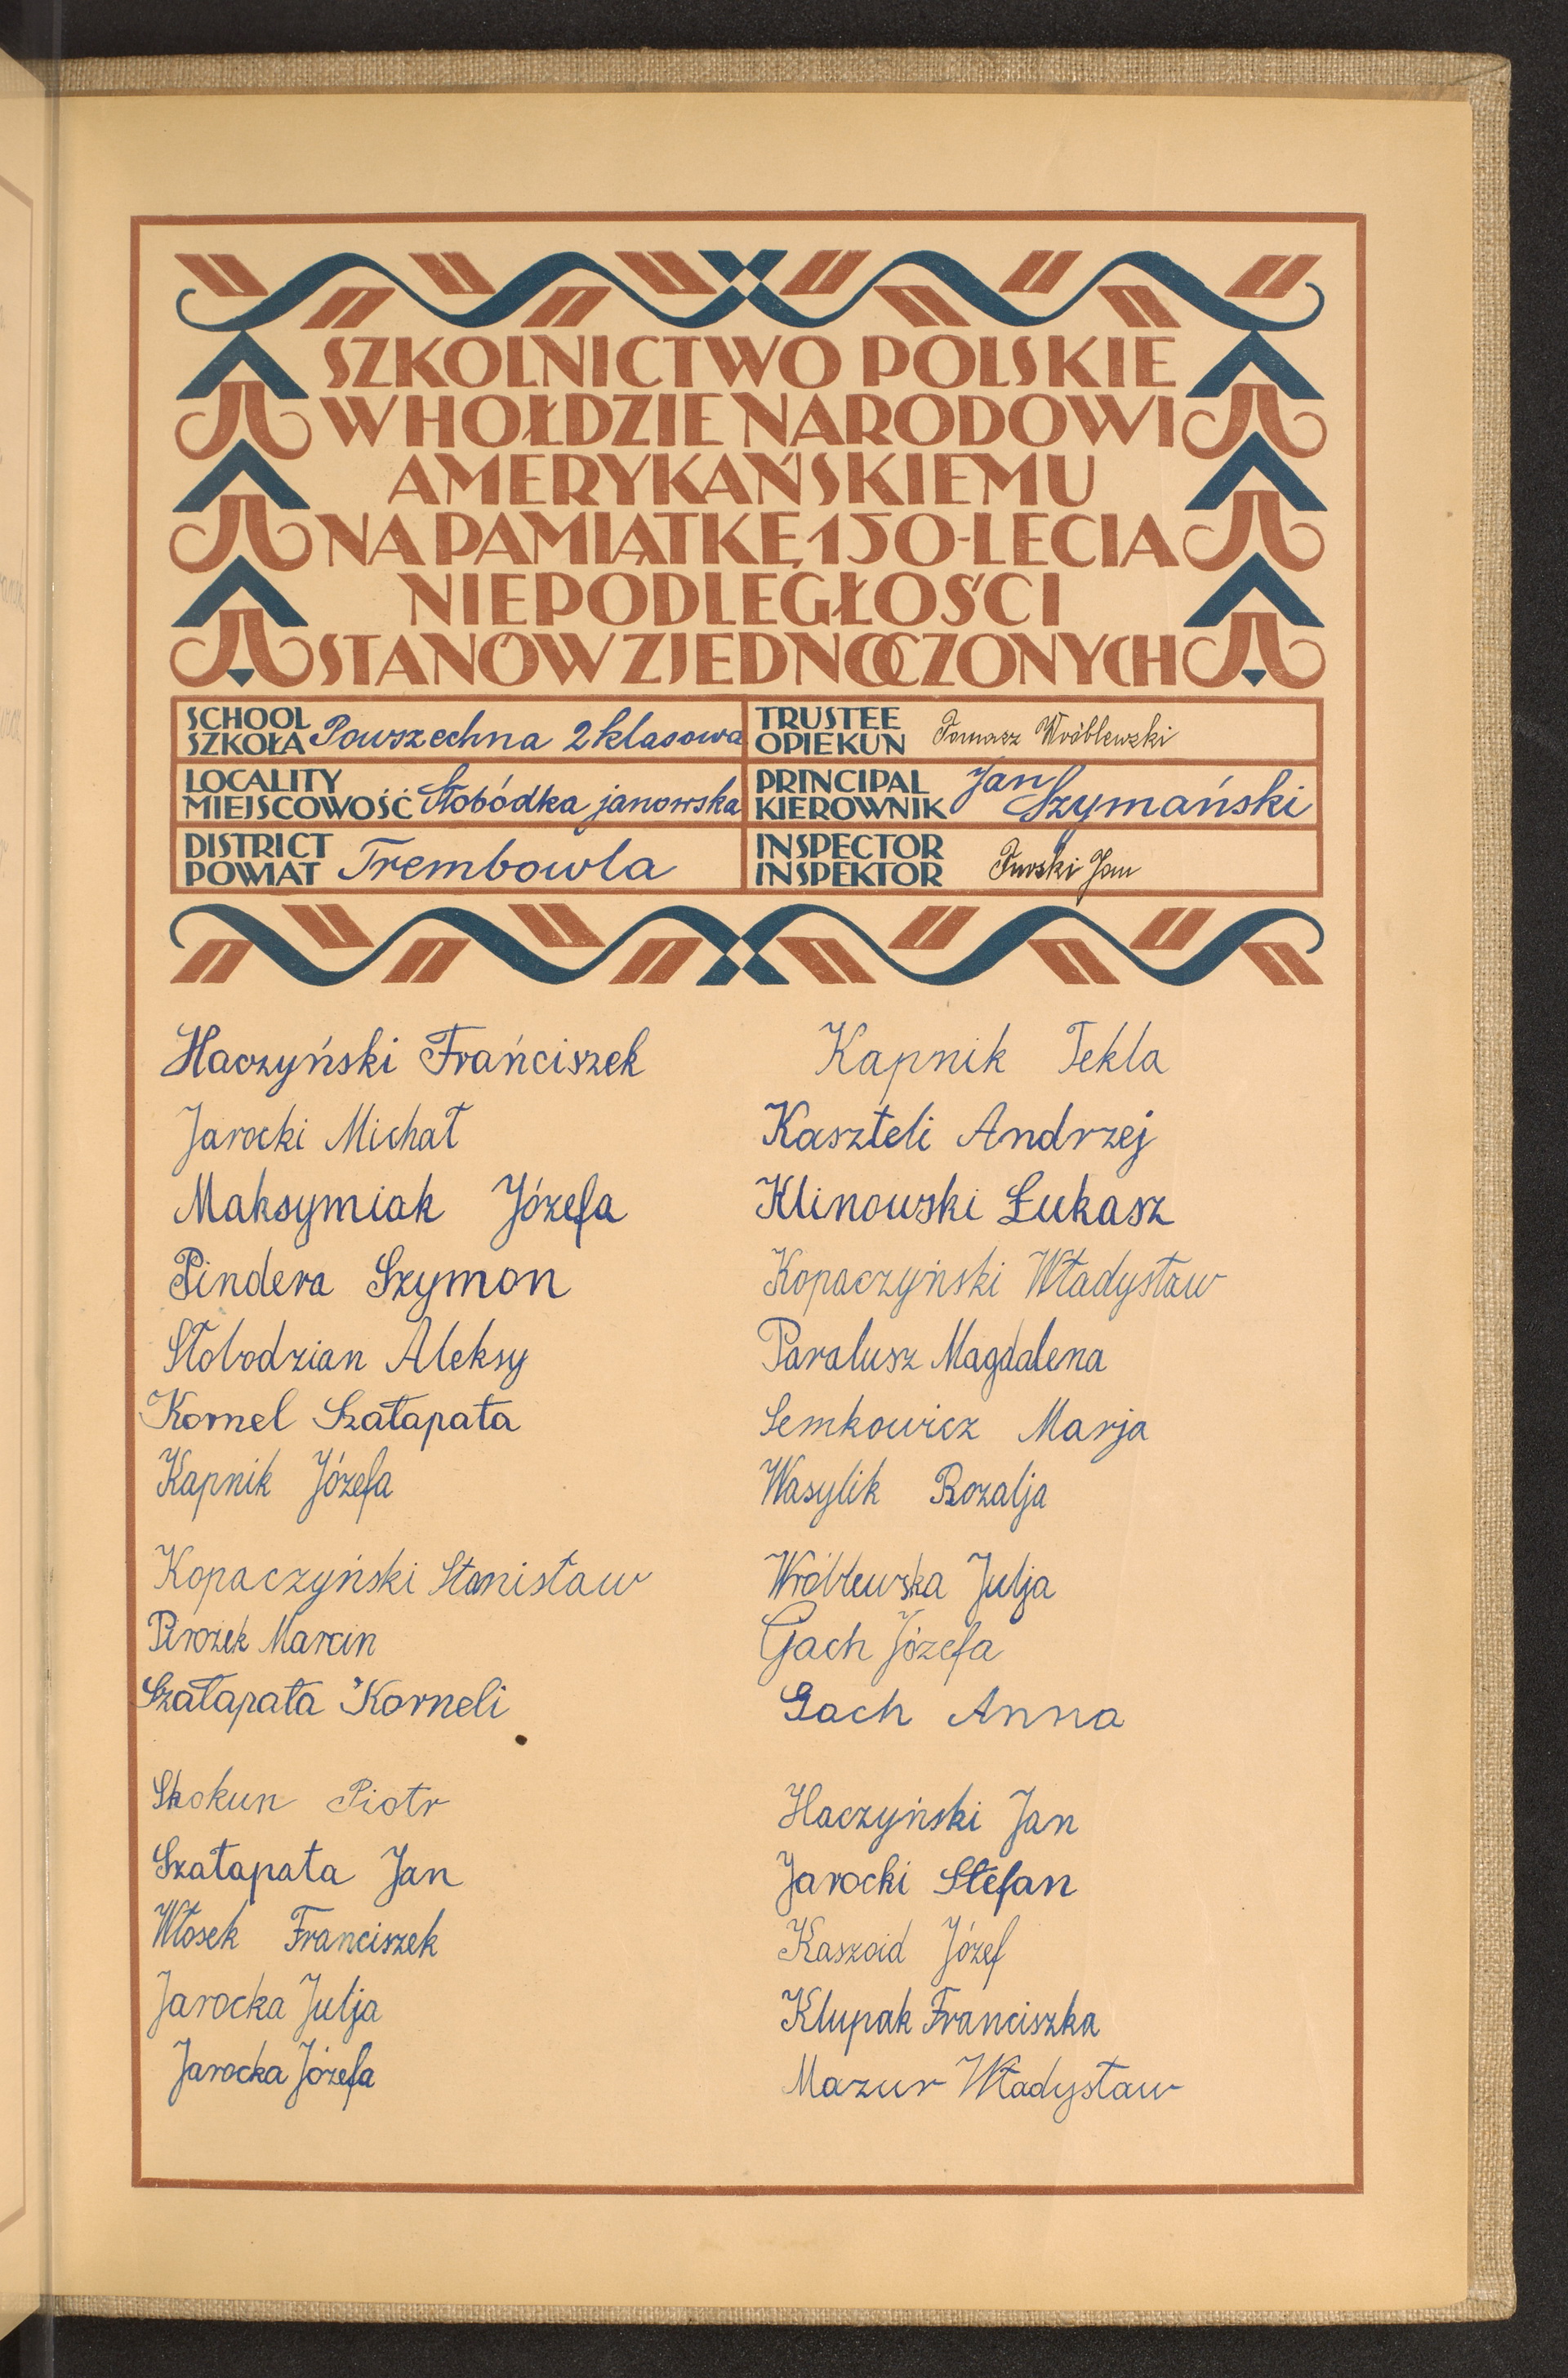 SZKOLNICTWO POLSKIE
W HOŁDZIE NARODOWI
AMERYKAŃSKIEMU
NA PAMIĄTKĘ 150-LECIA
NIEPODLEGŁOŚCI
STANÓW ZJEDNOCZONYCH
SCHOOL
SZKOŁA Powszechna 2 klasowa
TRUSTEE
OPIEKUN Tomasz Wróblewski
LOCALITY
MIEJSCOWOŚĆ Słobódka janowska
PRINCIPAL
KIEROWNIK Jan Szymański
DISTRICT
POWIAT Trembowla
INSPECTOR
INSPEKTOR Jan
Haczyński Frańciszek
Jarocki Michał
Maksymiak Józefa
Pindera Szymon
Słobodzian Aleksy
Kornel Szałapata
Kapnik Józefa
Kopaczyński Stanisław
Pirożek Marcin
Szałapata Korneli
Skokun Piotr
Szałapata Jan
Włosek Franciszek
Jarocka Julja
Jarocka Józefa
Kapnik Tekla
Kaszteli Andrzej
Klinowski Łukasz
Kopaczyński Władysław
Paralusz Magdalena
Semkowicz Marja
Wasylik Rozalja
Wróblewska Julja
Gach Józefa
Gach Anna
Haczyński Jan
Jarocki Stefan
Kaszoid Józef
Klupak Franciszka
Mazur Władysław